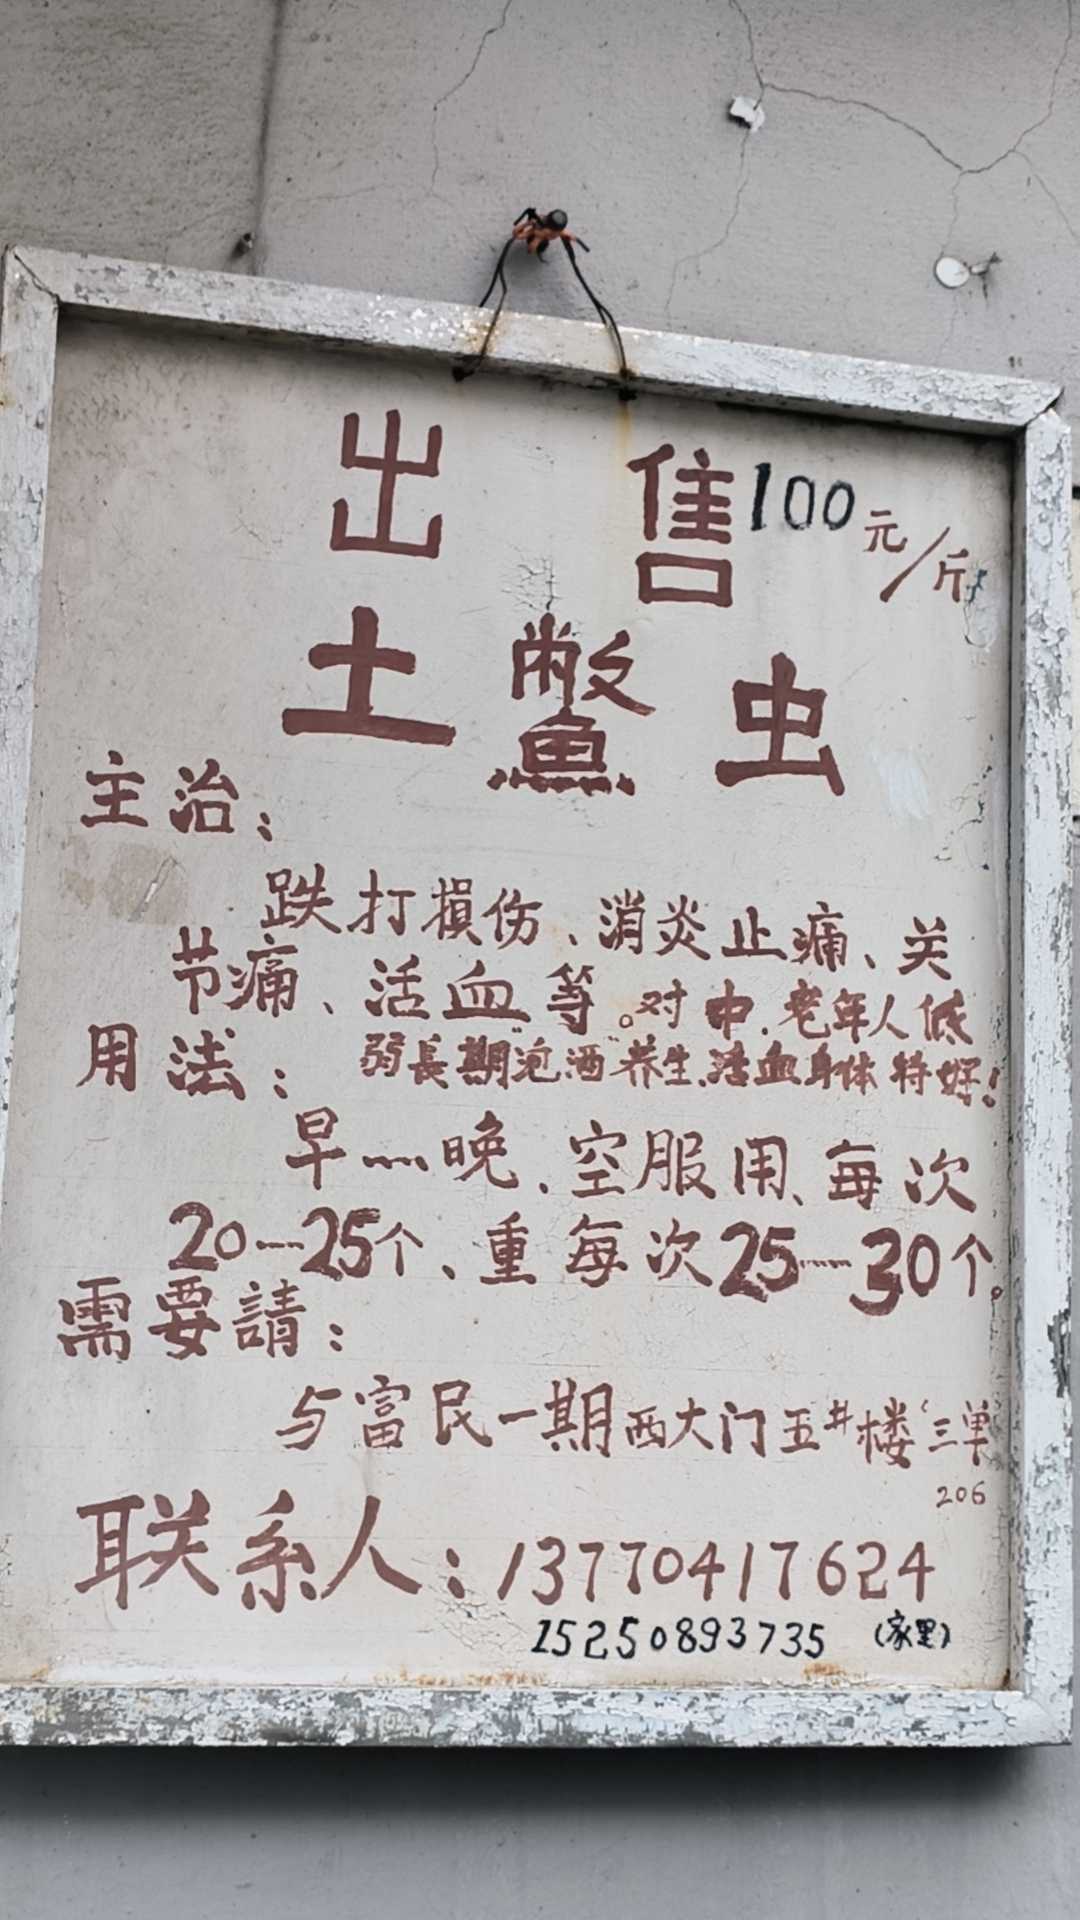 出售100元/斤
土鱉虫
主治：
跌打損伤、消炎止痛、关
节痛、活血等。对中.老年人低
用法：弱長期泡酒"养生.活血身体特好!
早一晚、空服用、每次
20—25个、重每次25—30个。
需要請：
与富民一期西大门五#楼'三单
206
联系人：13770417624
15250893735（家里）